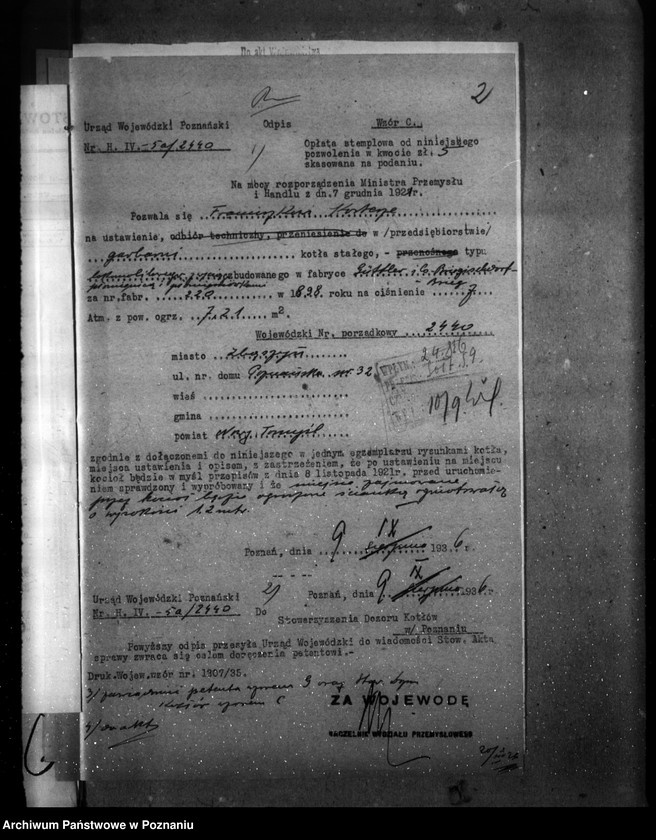 Do akt
2
Urząd Wojewódzki Poznański Odpis Wzór C.
Nr. H. IV. -5a/2440
1/ Opłata stemplowa od niniejszego
pozwolenia w kwocie zł. 3
skasowana na podaniu.
Na mocy rozporządzenia Ministra Przemysłu
i Handlu z dn.7 grudnia 1921r.
Pozwala się
na ustawienie, odbiór techniczny, przeniesienie do w /przedsiębiorstwie/
/ garbarni kotła stałego, - przenośnego typu
zbudowanego w fabryce Güttler i C.
za nr.fabr. 220 w 1898 roku na ciśnienie 7
Atm. z pow. ogrz. 7.21 m2.
Wojewódzki Nr. porządkowy 2440
miasto Zbąszyń
ul. nr. domu Poznańska nr. 32
wieś
gmina
powiat Nowy Tomyśl
10/9
zgodnie z dołączonemi do niniejszego w jednym egzemplarzu rysunkami kotła,
miejsca ustawienia i opisem, z zastrzeżeniem, że po ustawieniu na miejscu
kocioł będzie w myśl przepisów z dnia 8 listopada 1921r. przed uruchomie-
niem sprawdzony i wypróbowany i że miejsce zajmowane
przez kocioł będzie ogrodzone ścianką ogniotrwałą
o wysokości 1.2 mtr.
Poznań, dnia 9 IX sierpnia 1936 r.
Urząd Wojewódzki Poznański 2/ Poznań, dnia 9 IX sierpnia 1936 r.
Nr. H. IV. -5a/2440 Do
Stowarzyszenia Dozoru Kotłów
w/ Poznaniu
Powyższy odpis przesyła Urząd Wojewódzki do wiadomości Stow. Akta
sprawy zwraca się celem doręczenia patentowi.-
Druk.Wojew.wzór nr. 1907/35.
3/
ZA WOJEWODĘ
4/
NACZELNIK WYDZIAŁU PRZEMYSŁOWEGO
Archiwum Państwowe w Poznaniu